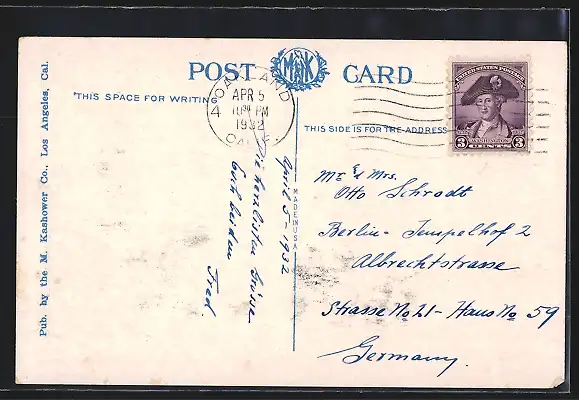 POST CARD
MK
THIS SPACE FOR WRITING
THIS SIDE IS FOR THE ADDRESS
OAKLAND
APR 5
PM
1932
CALIF.
4
UNITED STATES POSTAGE
WASHINGTON
3 CENTS 3
Pub. by the M. Kashower Co., Los Angeles, Cal.
MADE IN USA
April 5 - 1932
Die herzlichsten Grüsse
Euch beiden
Fred.
Mr. & Mrs.
Otto Schrodt
Berlin - Tempelhof 2
Albrechtstrasse
Strasse No 21 - Haus No 59
Germany.